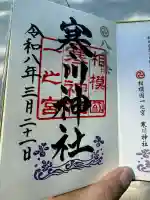 八方除
相模國
一之宮
寒川神社
令和八年三月二十一日
相模國一之宮 寒川神社